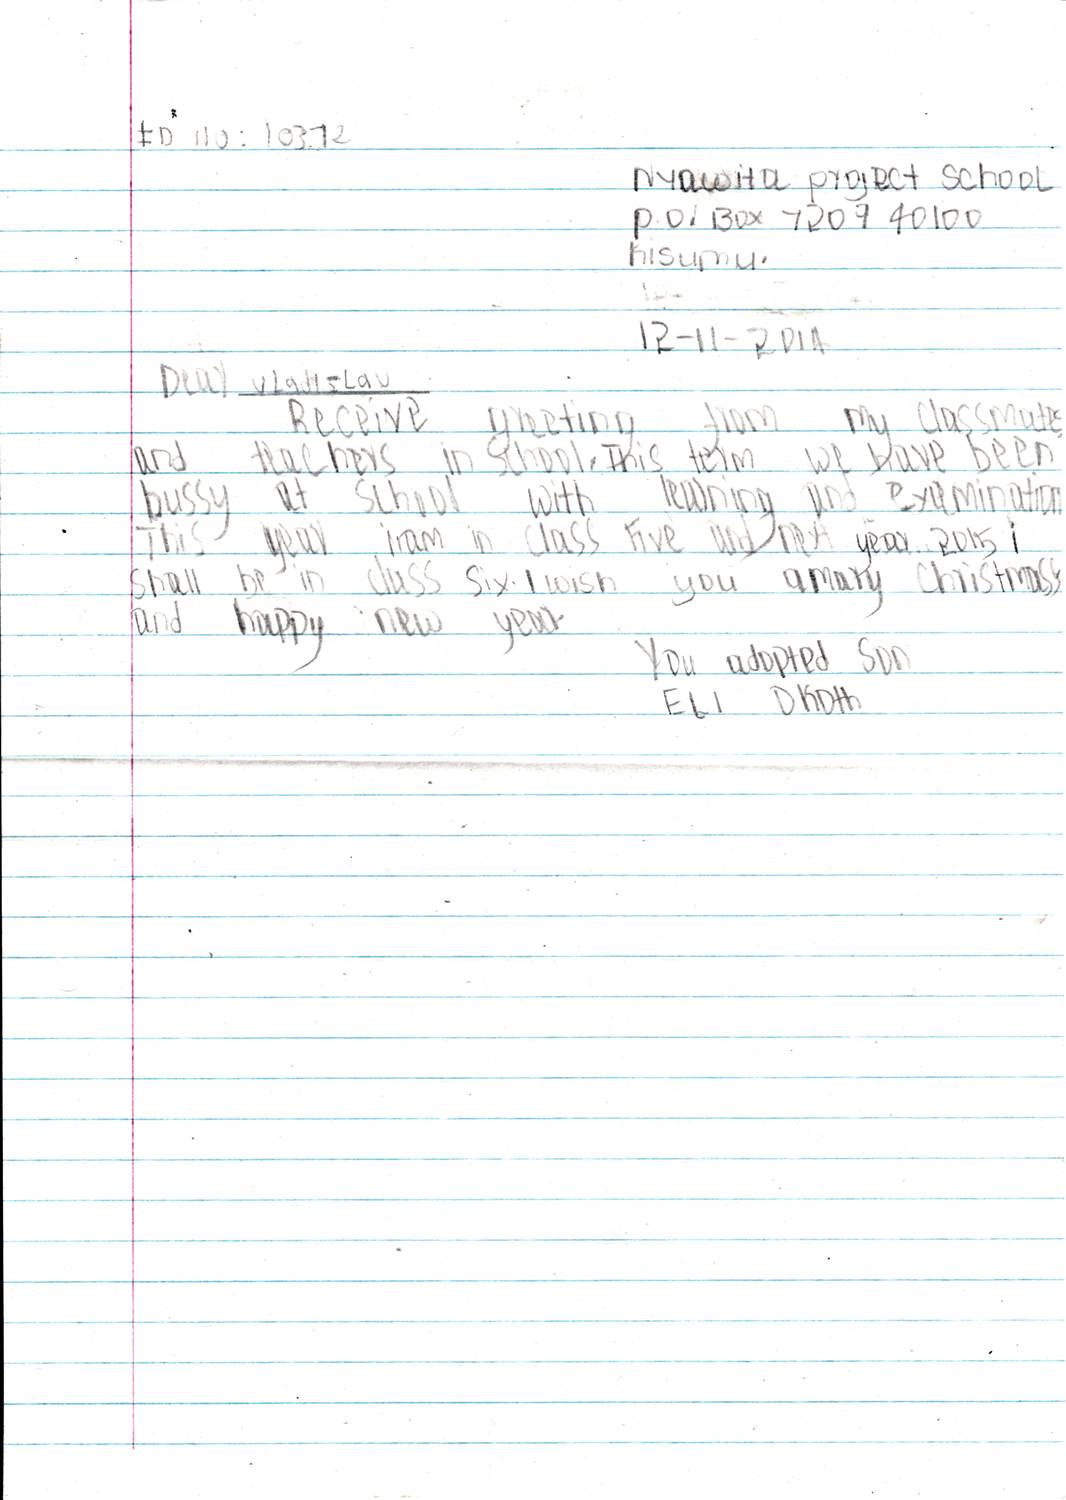 ID no: 10372
Nyawita project School
p.o. Box 7209 40100
Kisumu.
12-11-2014
Dear Vladislav
Receive greeting from my classmates
and teachers in school. This term we have been
bussy at school with learning and Examination
This year iram in class Five and next year 2015 i
shall be in class six. I wish you amary Christmass
and happy new year
You adopted Son
ELI OKOth